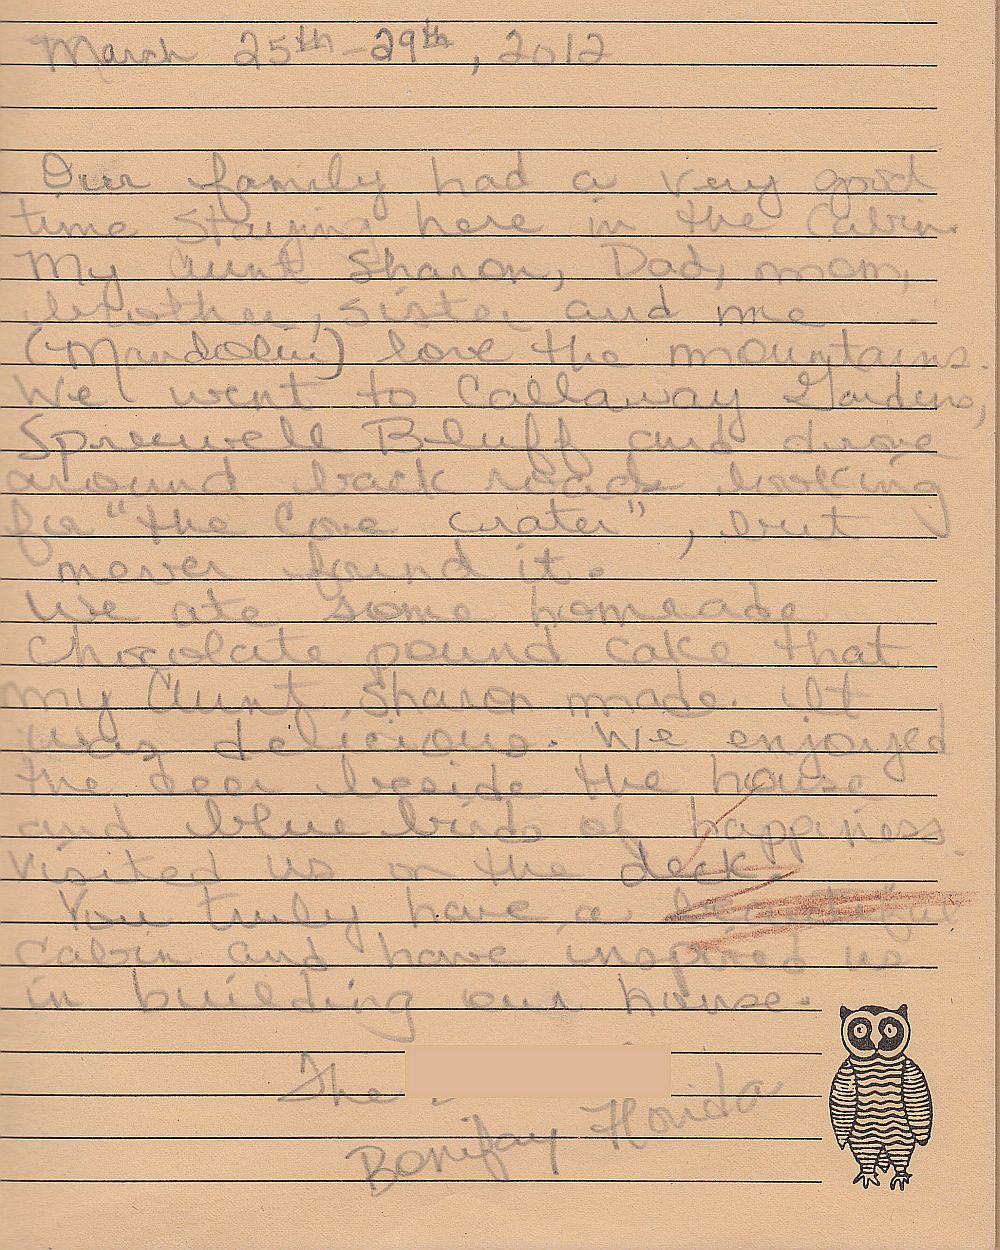 March 25th-29th, 2012
Our family had a very good
time staying here in the Cabin.
My Aunt Sharon, Dad, mom,
brother, sister and me
(Mandolin) love the mountains.
We went to Callaway Gardens,
Sprewell Bluff and drove
around back roads looking
for "the Cove crater", but
never found it.
We ate some homeade
Chocolate pound cake that
my Aunt Sharon made. It
was delicious. We enjoyed
the deer beside the house
and blue birds of happiness
visited us on the deck.
You truly have a beautiful
Cabin and have inspired us
in building our house.
The
Bonifay Florida